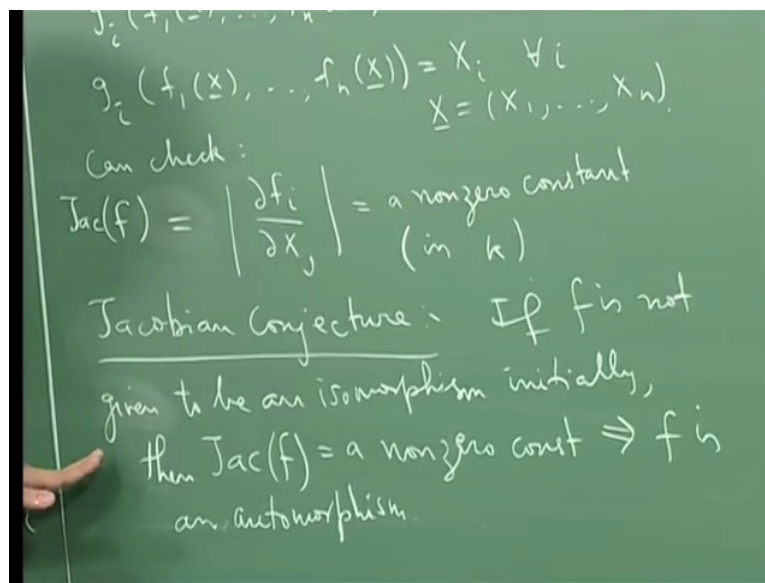 g_i (f_1(X), ..., f_n(X)) = X_i ∀i
X = (X_1, ..., X_n).
Can check:
Jac(f) = | ∂f_i / ∂X_j | = a nonzero constant
(in k)
Jacobian Conjecture:- If f is not
given to be an isomorphism initially,
then Jac(f) = a nonzero const ⇒ f is
an automorphism.